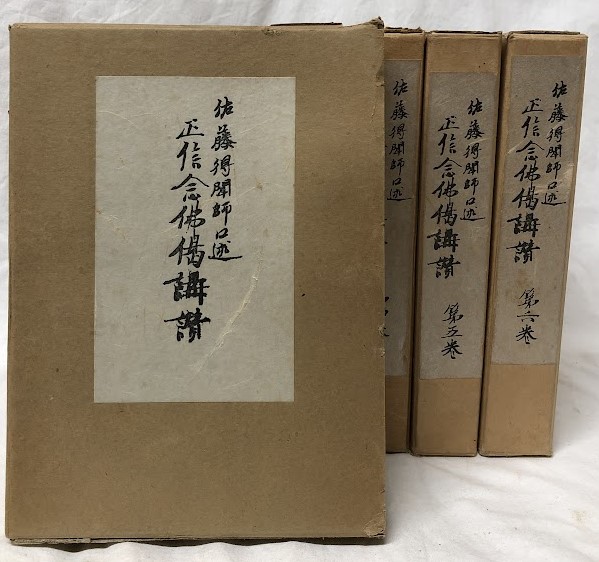 佐藤得聞師口述
正信念佛偈講讃
佐藤得聞師口述
佐藤得聞師口述
正信念佛偈講讃
第五巻
佐藤得聞師口述
正信念佛偈講讃
第六巻